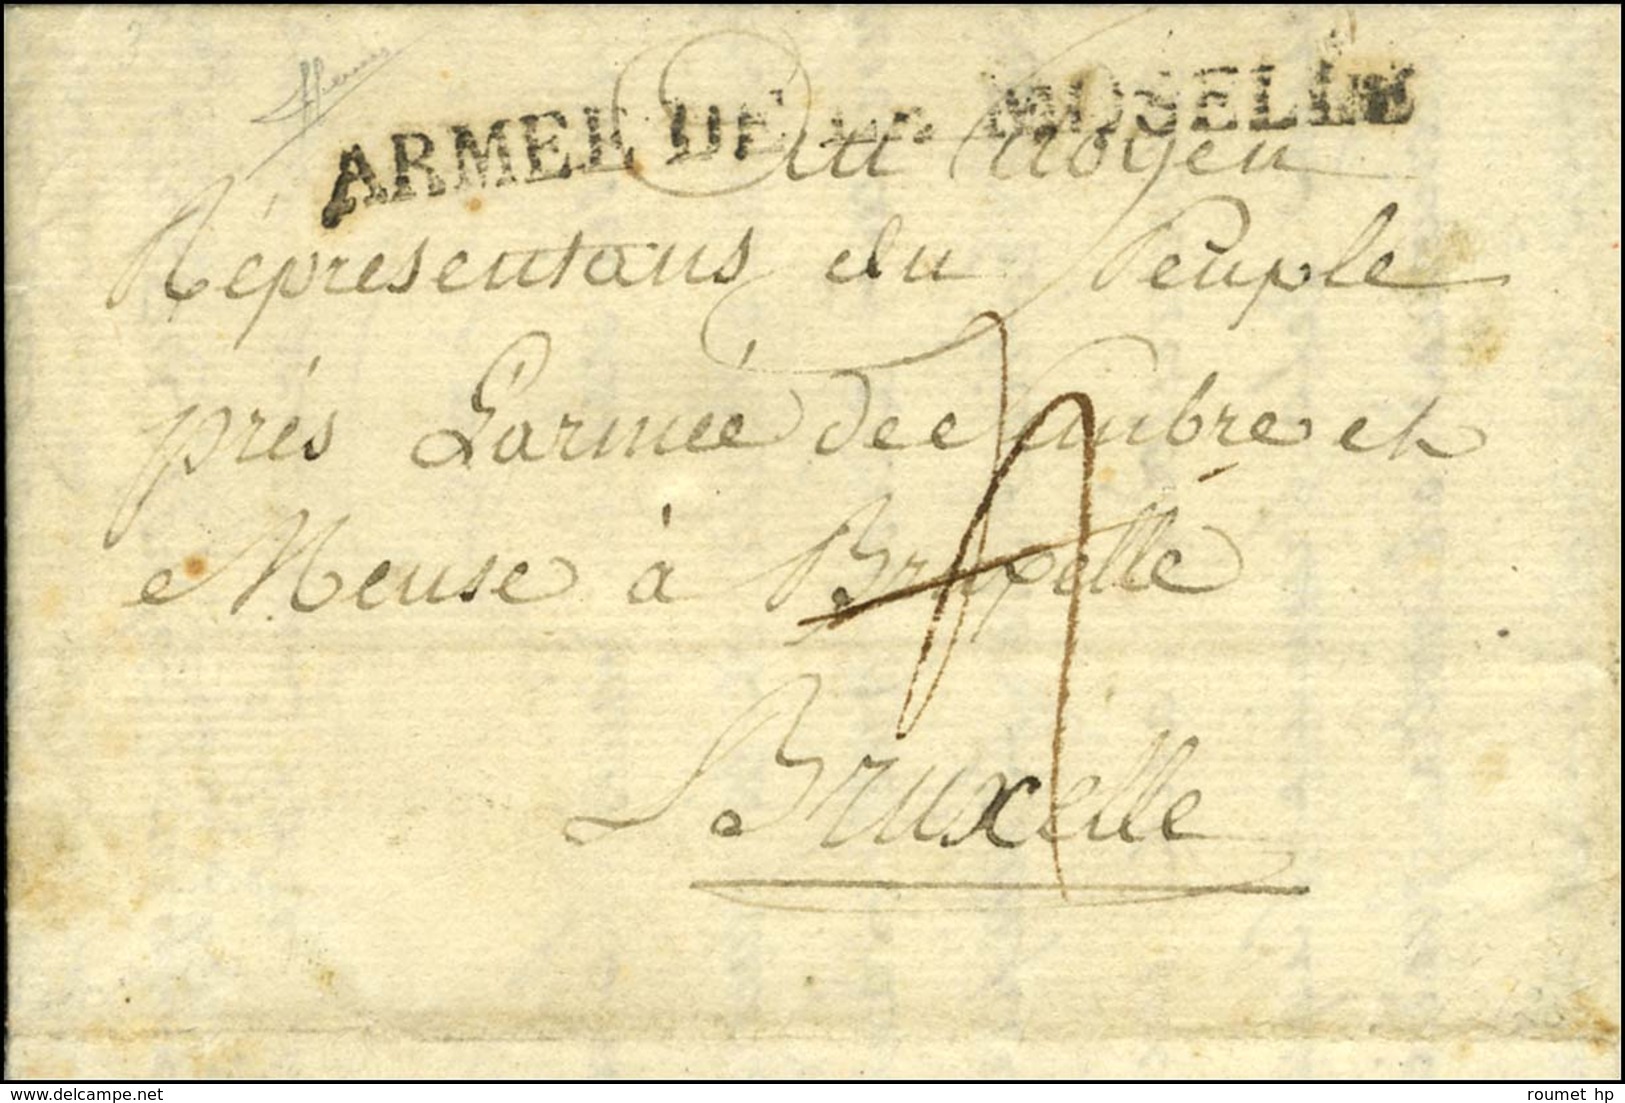 ARMEE DE LA MOSELLE
Au Citoyen
Répresentans du Peuple
prés Larmeé de Sambre et
Meuse à Bruxelle
Bruxelle
roumet hp